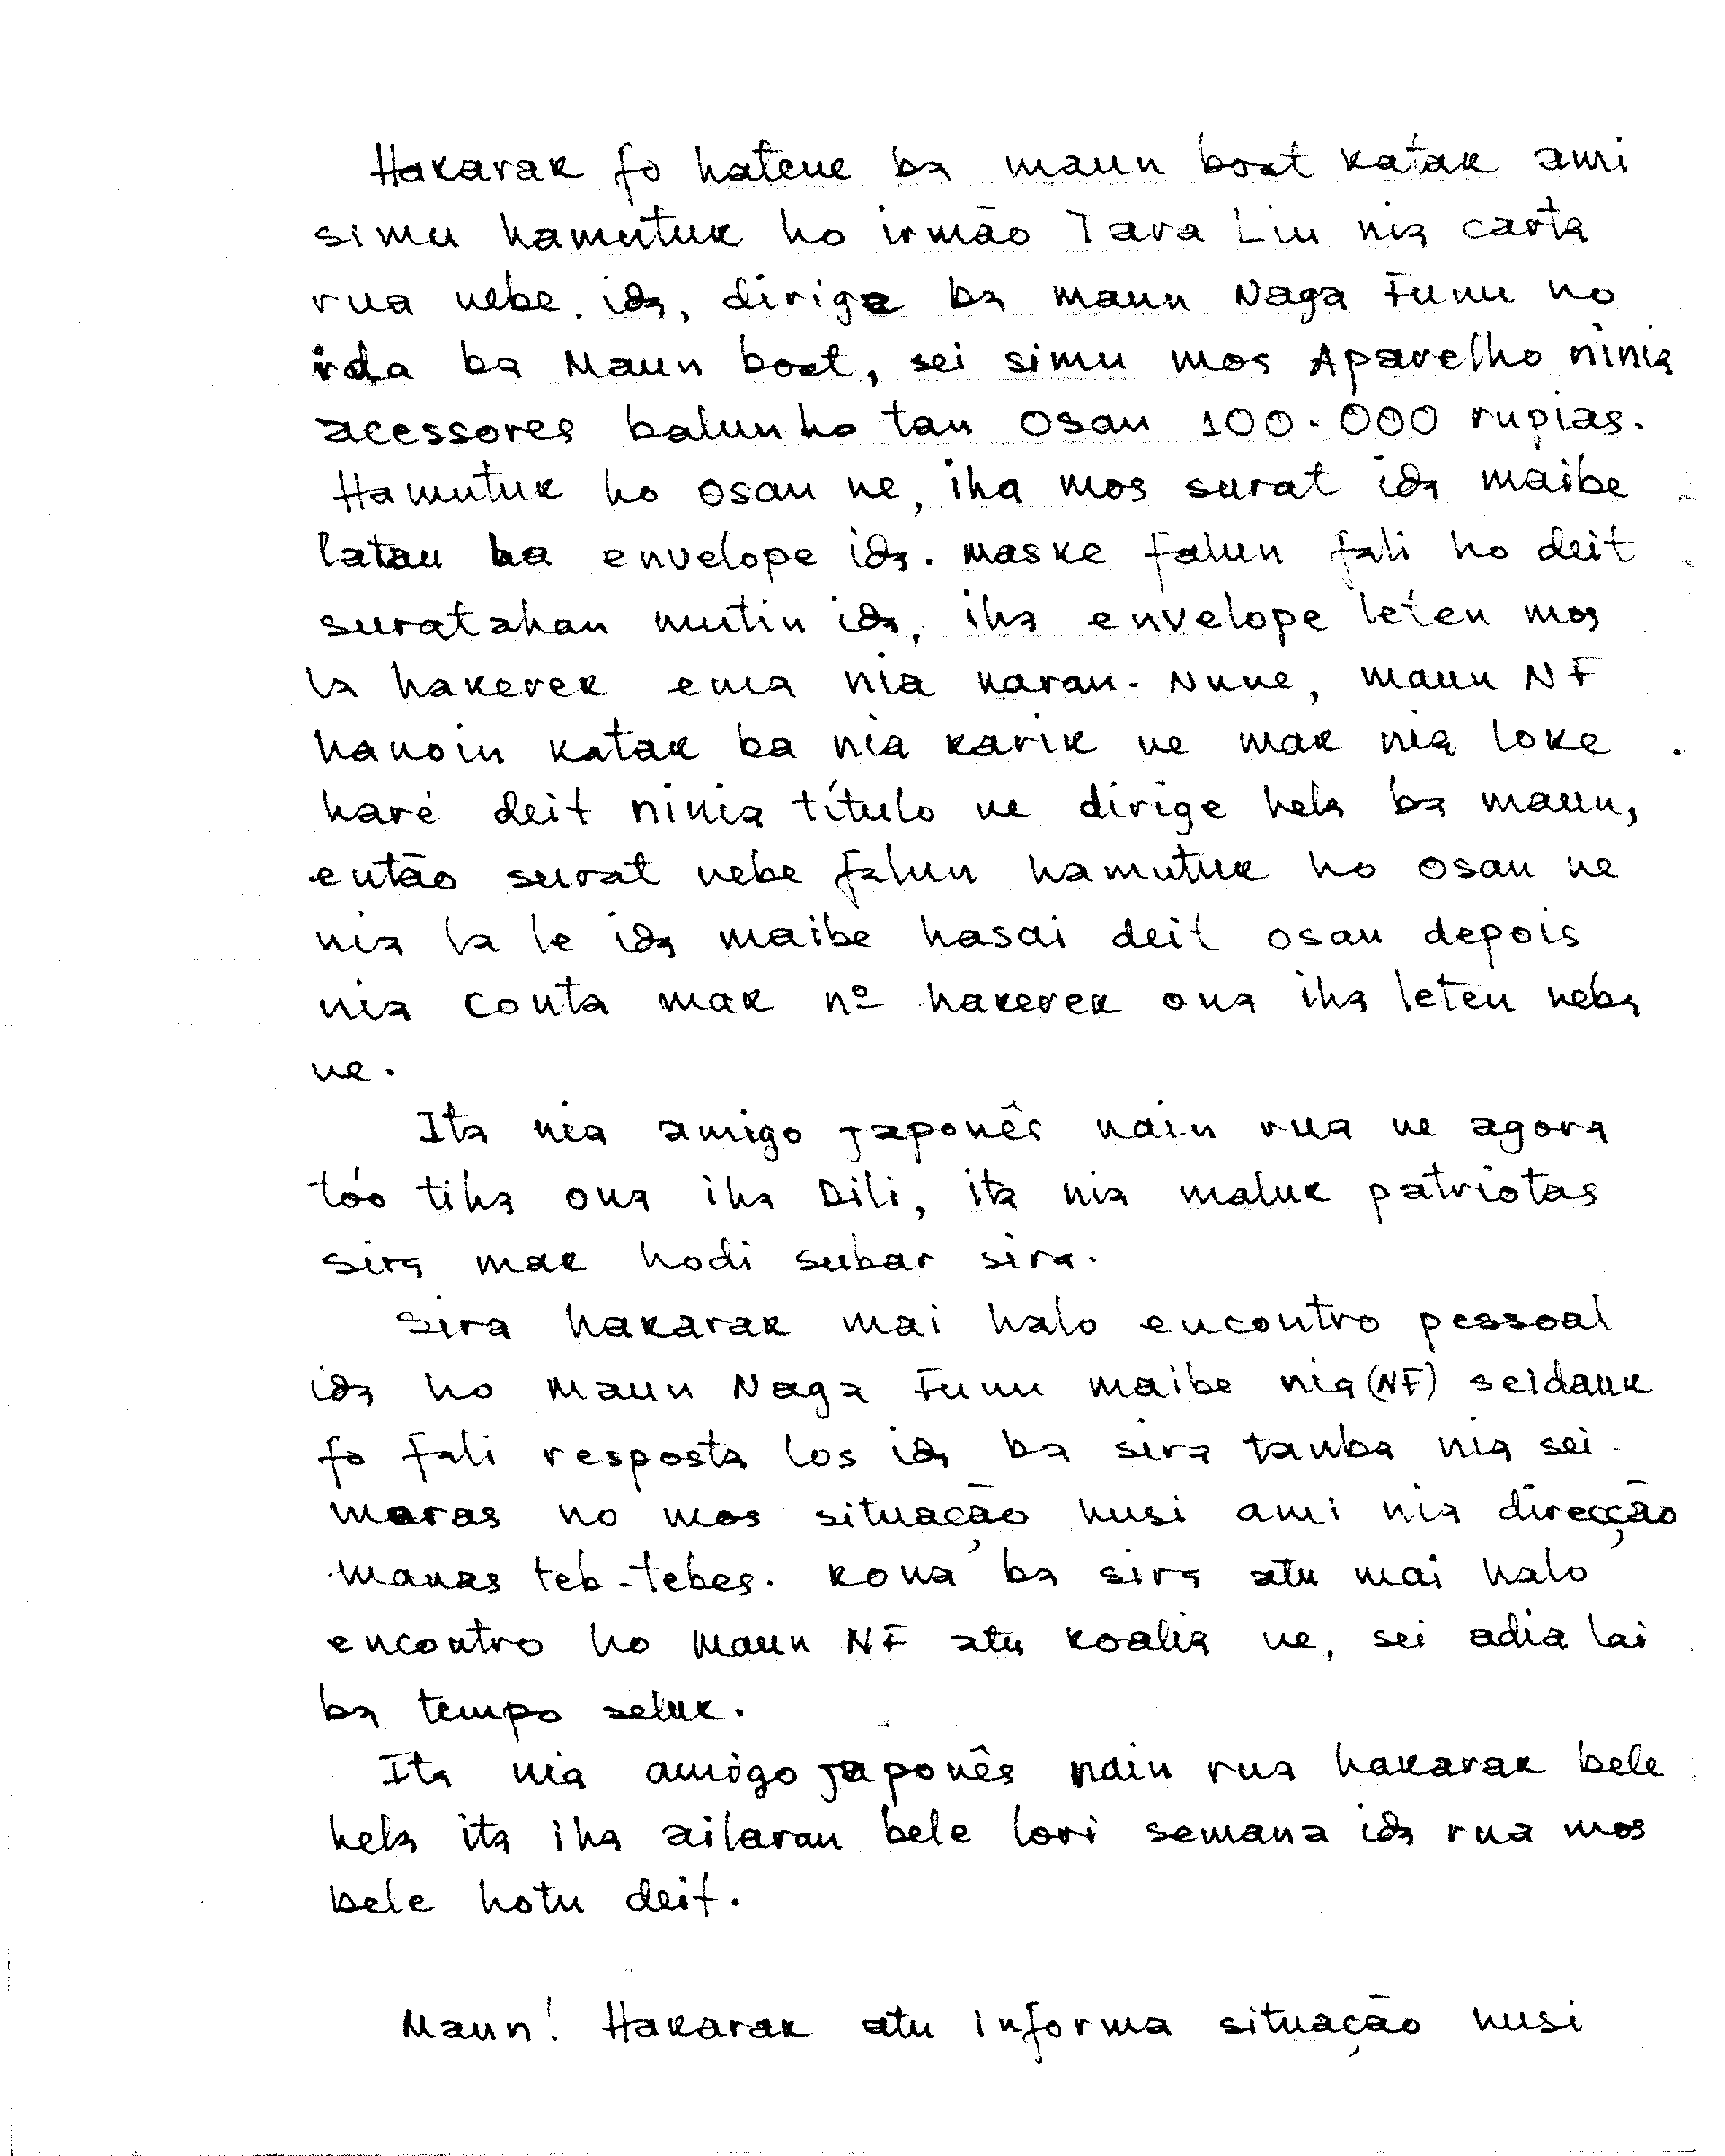 Hakarak fo hatene ba maun boot katak ami
simu hamutuk ho irmão Tara Liu nia carta
rua nebe. ida, dirige ba maun Naga Funu no
ida ba Maun boot, sei simu mos Aparelho ninia
acessores balun ho tan osan 100.000 rupias.
Hamutuk ho osan ne, iha mos surat ida maibe
latau ba envelope ida. maske falun fali ho deit
suratahan mutin ida, iha envelope leten mos
la hakerek ema nia naran. Nune, maun NF
hanoin katak ba nia karik ne mak nia loke
haré deit ninia título ne dirige hela ba maun,
então surat nebe falun hamutuk ho osan ne
nia la le ida maibe hasai deit osan depois
nia conta mak nº hakerek ona iha leten neba
ne.
Ita nia amigo japonês nain rua ne agora
tóo tiha ona iha Dili, ita nia maluk patriotas
sira mak hodi subar sira.
Sira hakarak mai halo encontro pessoal
ida ho Maun Naga Funu maibe nia (NF) seidauk
fo fali resposta los ida ba sira tanba nia sei
moras no mos situação husi ami nia direcção
manas teb-tebes. Kona ba sira atu mai halo
encontro ho Maun NF atu koalia ne, sei adia lai
ba tempo seluk.
Ita nia amigo japonês nain rua hakarak bele
hela ita iha ailaran bele lori semana ida rua mos
bele hotu deit.
Maun! Hakarak atu informa situação husi